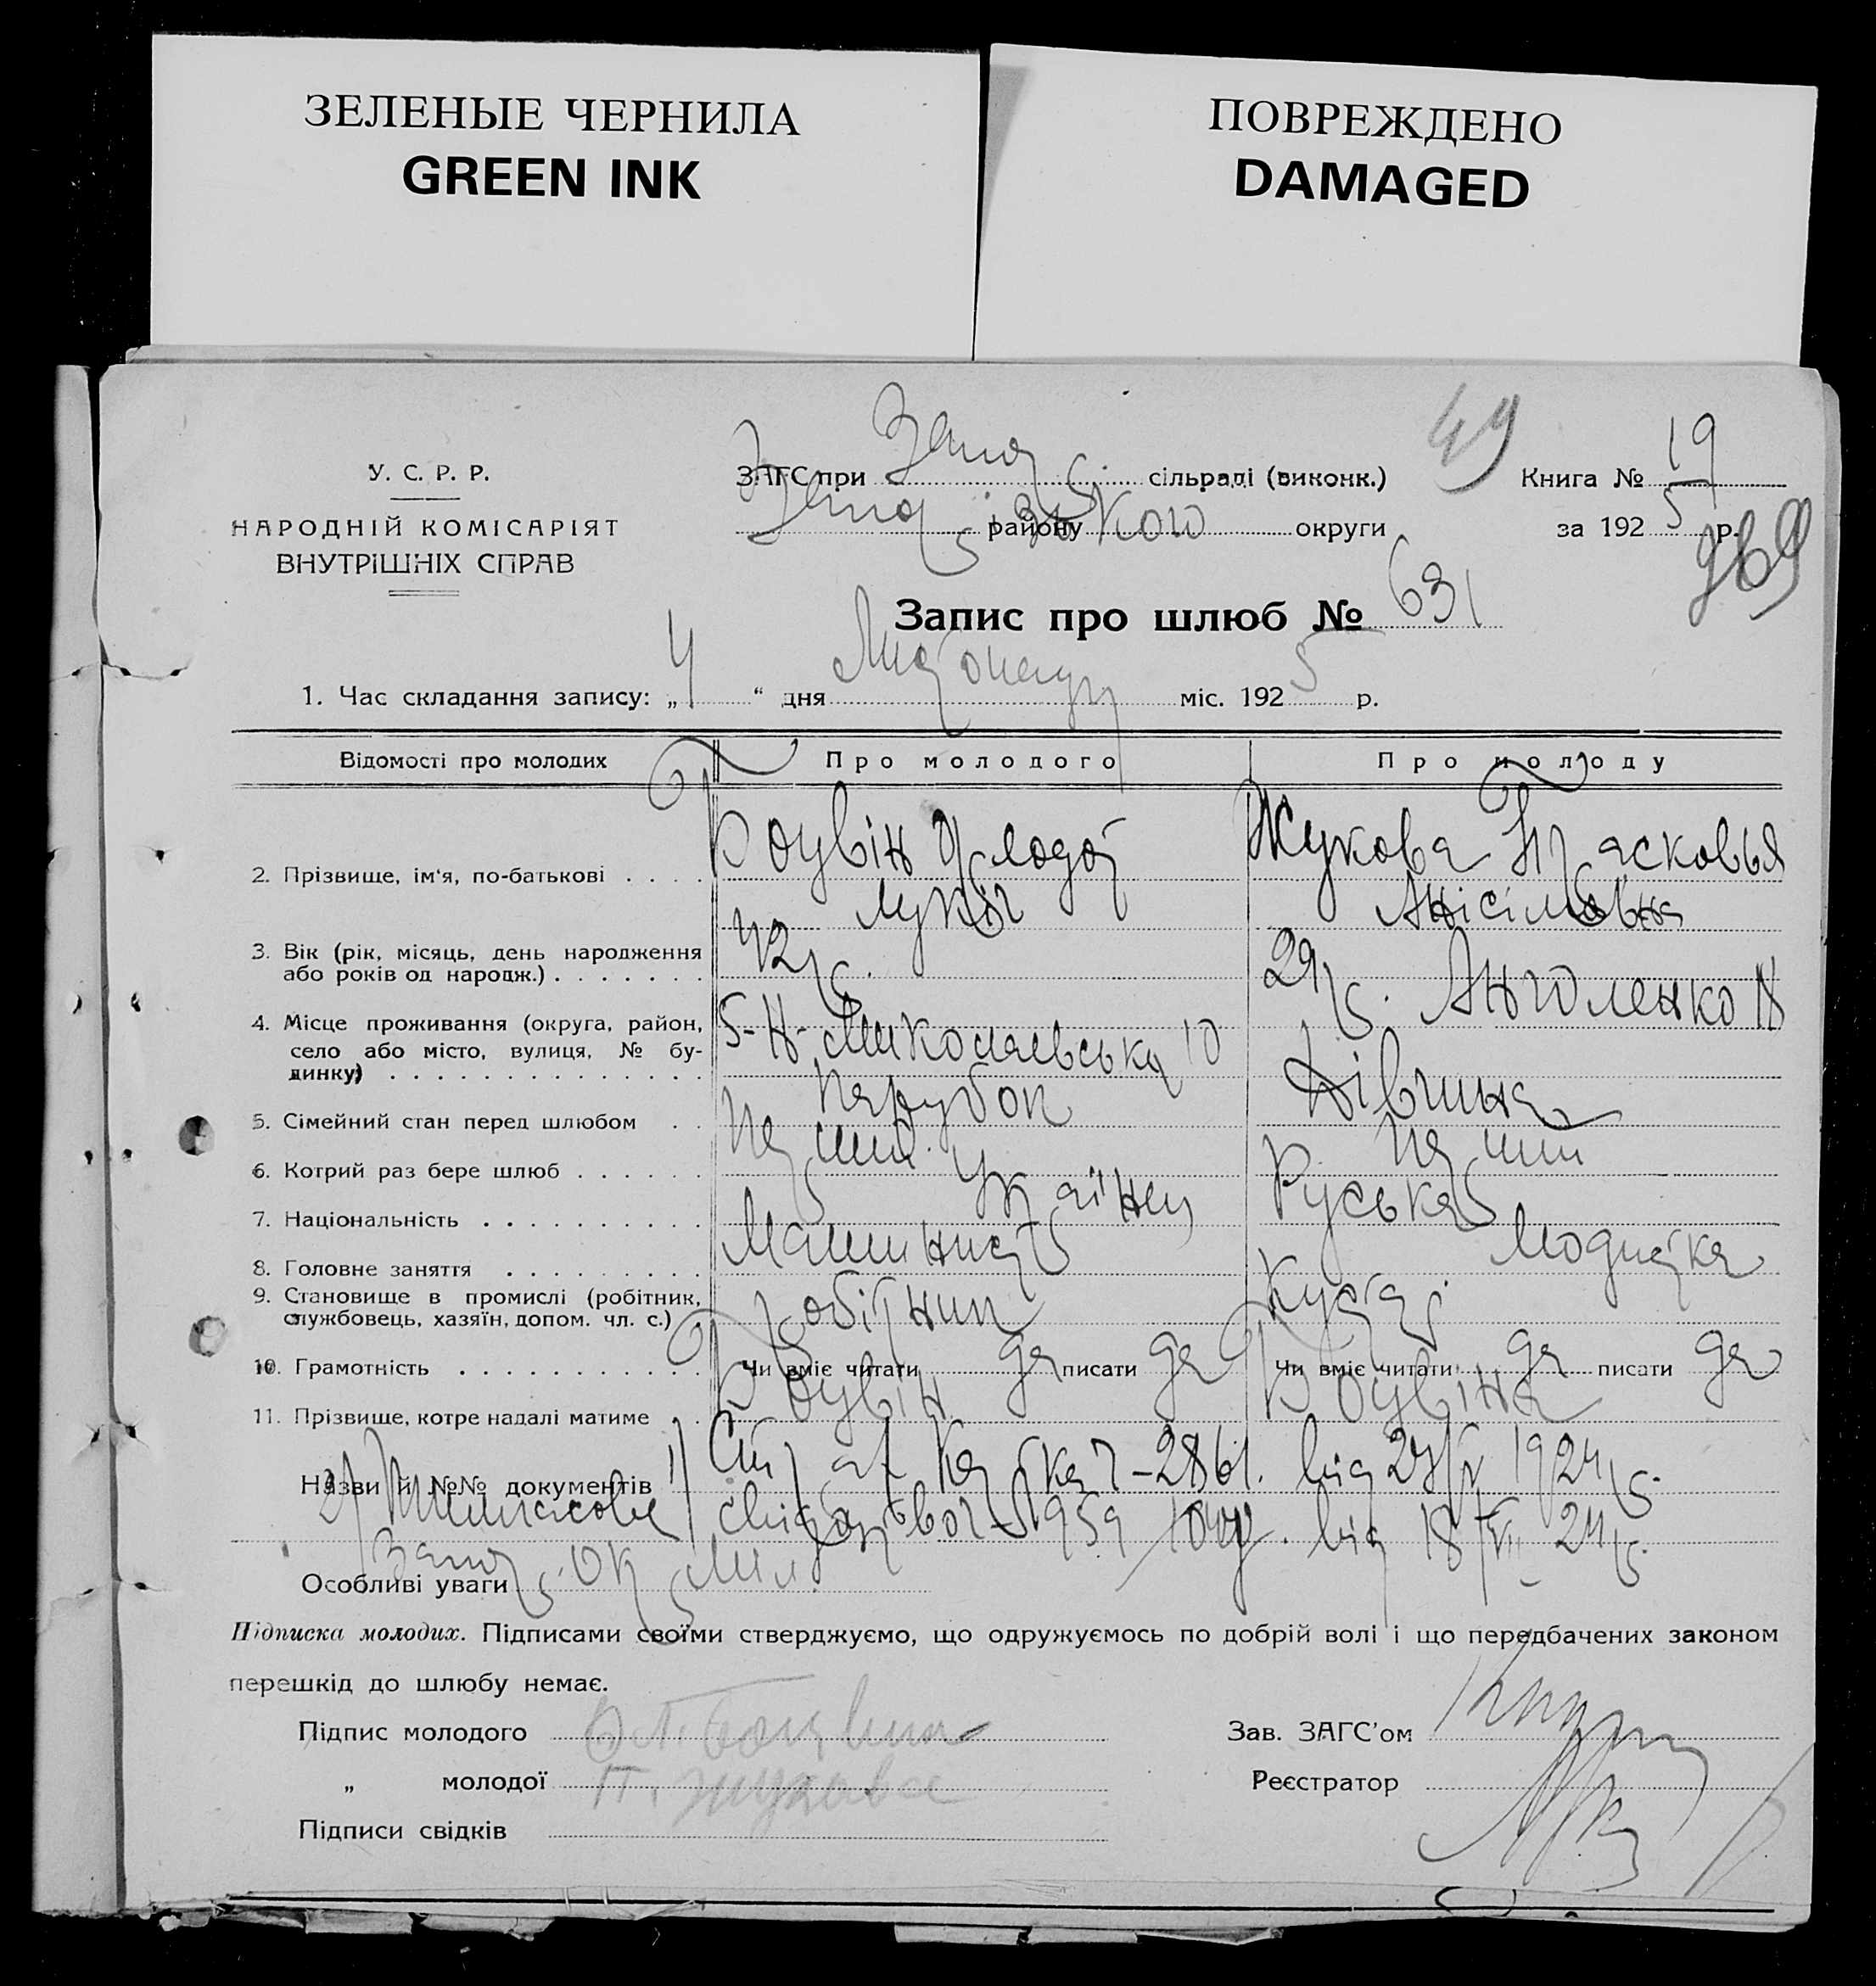 ЗЕЛЕНЫЕ ЧЕРНИЛА
GREEN INK
ПОВРЕЖДЕНО
DAMAGED
У. С. Р. Р.
НАРОДНІЙ КОМІСАРІЯТ
ВНУТРІШНІХ СПРАВ
ЗАГС при Запор. сільраді (виконк.)
Запорізького району округи
49
Книга № 19
за 1925 р.
969
Запис про шлюб № 631
1. Час складання запису: „4“ дня Листопаду міс. 1925 р.
Відомості про молодих Про молодого Про молоду
2. Прізвище, ім'я, по-батькові . . . . Боувін Лукич Жукова Парасковья Анісімовна
3. Вік (рік, місяць, день народження
або років од народж.) . . . . . . . 42 р. 29 р.
4. Місце проживання (округа, район,
село або місто, вулиця, № бу-
динку) . . . . . . . . . . . . . . 5-Н-Миколаевська 10 Анголенко 18
5. Сімейний стан перед шлюбом . . Парубок Дівчина
6. Котрий раз бере шлюб . . . . . . Перший Перший
7. Національність . . . . . . . . . . Українец Руська
8. Головне заняття . . . . . . . . . Машинист Модистка
9. Становище в промислі (робітник,
службовець, хазяїн, допом. чл. с.) . Робітник Кустарь
10. Грамотність . . . . . . . . . . . Чи вміє читати да писати да Чи вміє читати да писати да
11. Прізвище, котре надалі матиме . . Боувін Боувіна
Назви й №№ документів 1/ картка ч-2861. від 1924 р.
2/ Тимчасове свідоцтво від 18 24 р.
Особливі уваги Запор. Окр Міл.
Підписка молодих. Підписами своїми стверджуємо, що одружуємось по добрій волі і що передбачених законом
перешкід до шлюбу немає.
Підпис молодого
„ молодої П. Жукова
Підписи свідків
Зав. ЗАГС'ом
Реєстратор